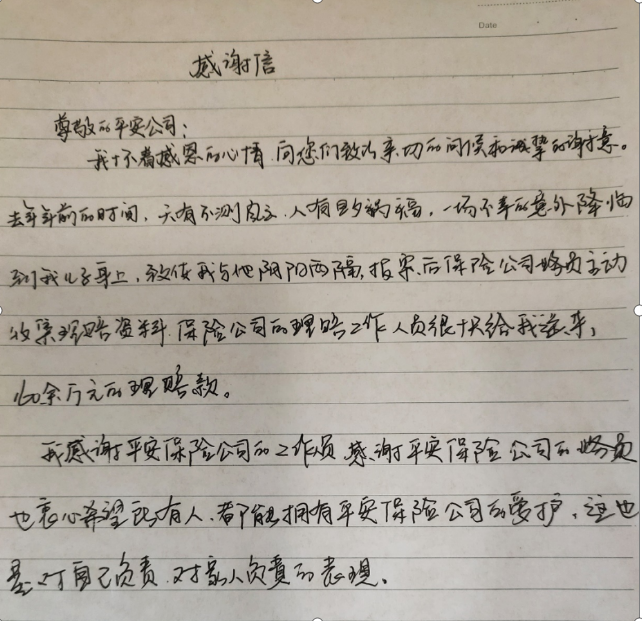 Date
感谢信
尊敬的平安公司:
我怀着感恩的心情,向您们致以亲切的问候和诚挚的谢意。
去年年前的时间,天有不测风云,人有旦夕祸福,一场不幸的意外降临
到我儿子身上,致使我与他阴阳两隔,报案后保险公司业务员主动
收集理赔资料,保险公司的理赔工作人员很快给我送来,
160余万元的理赔款。
我感谢平安保险公司的工作员,感谢平安保险公司的业务员
也衷心希望所有人,都能拥有平安保险公司的爱护,这也
是对自己负责,对家人负责的表现。